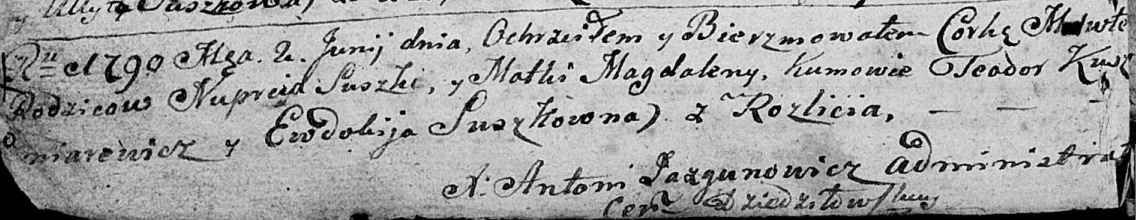 y Ullyta Suszkowa)
Ru 1790 Msca. 2. Junij dnia, Ochrzciłem y Bierzmowałem Corkę
Rodzicow Nuprcia Suszki, y Matki Magdaleny, Kumowie Teodor Kusz
niarewicz y Ewdokija Suszkowna) z Rozlicia,
X. Antoni Jazgunowicz administrat
Cer. Dziedziłow